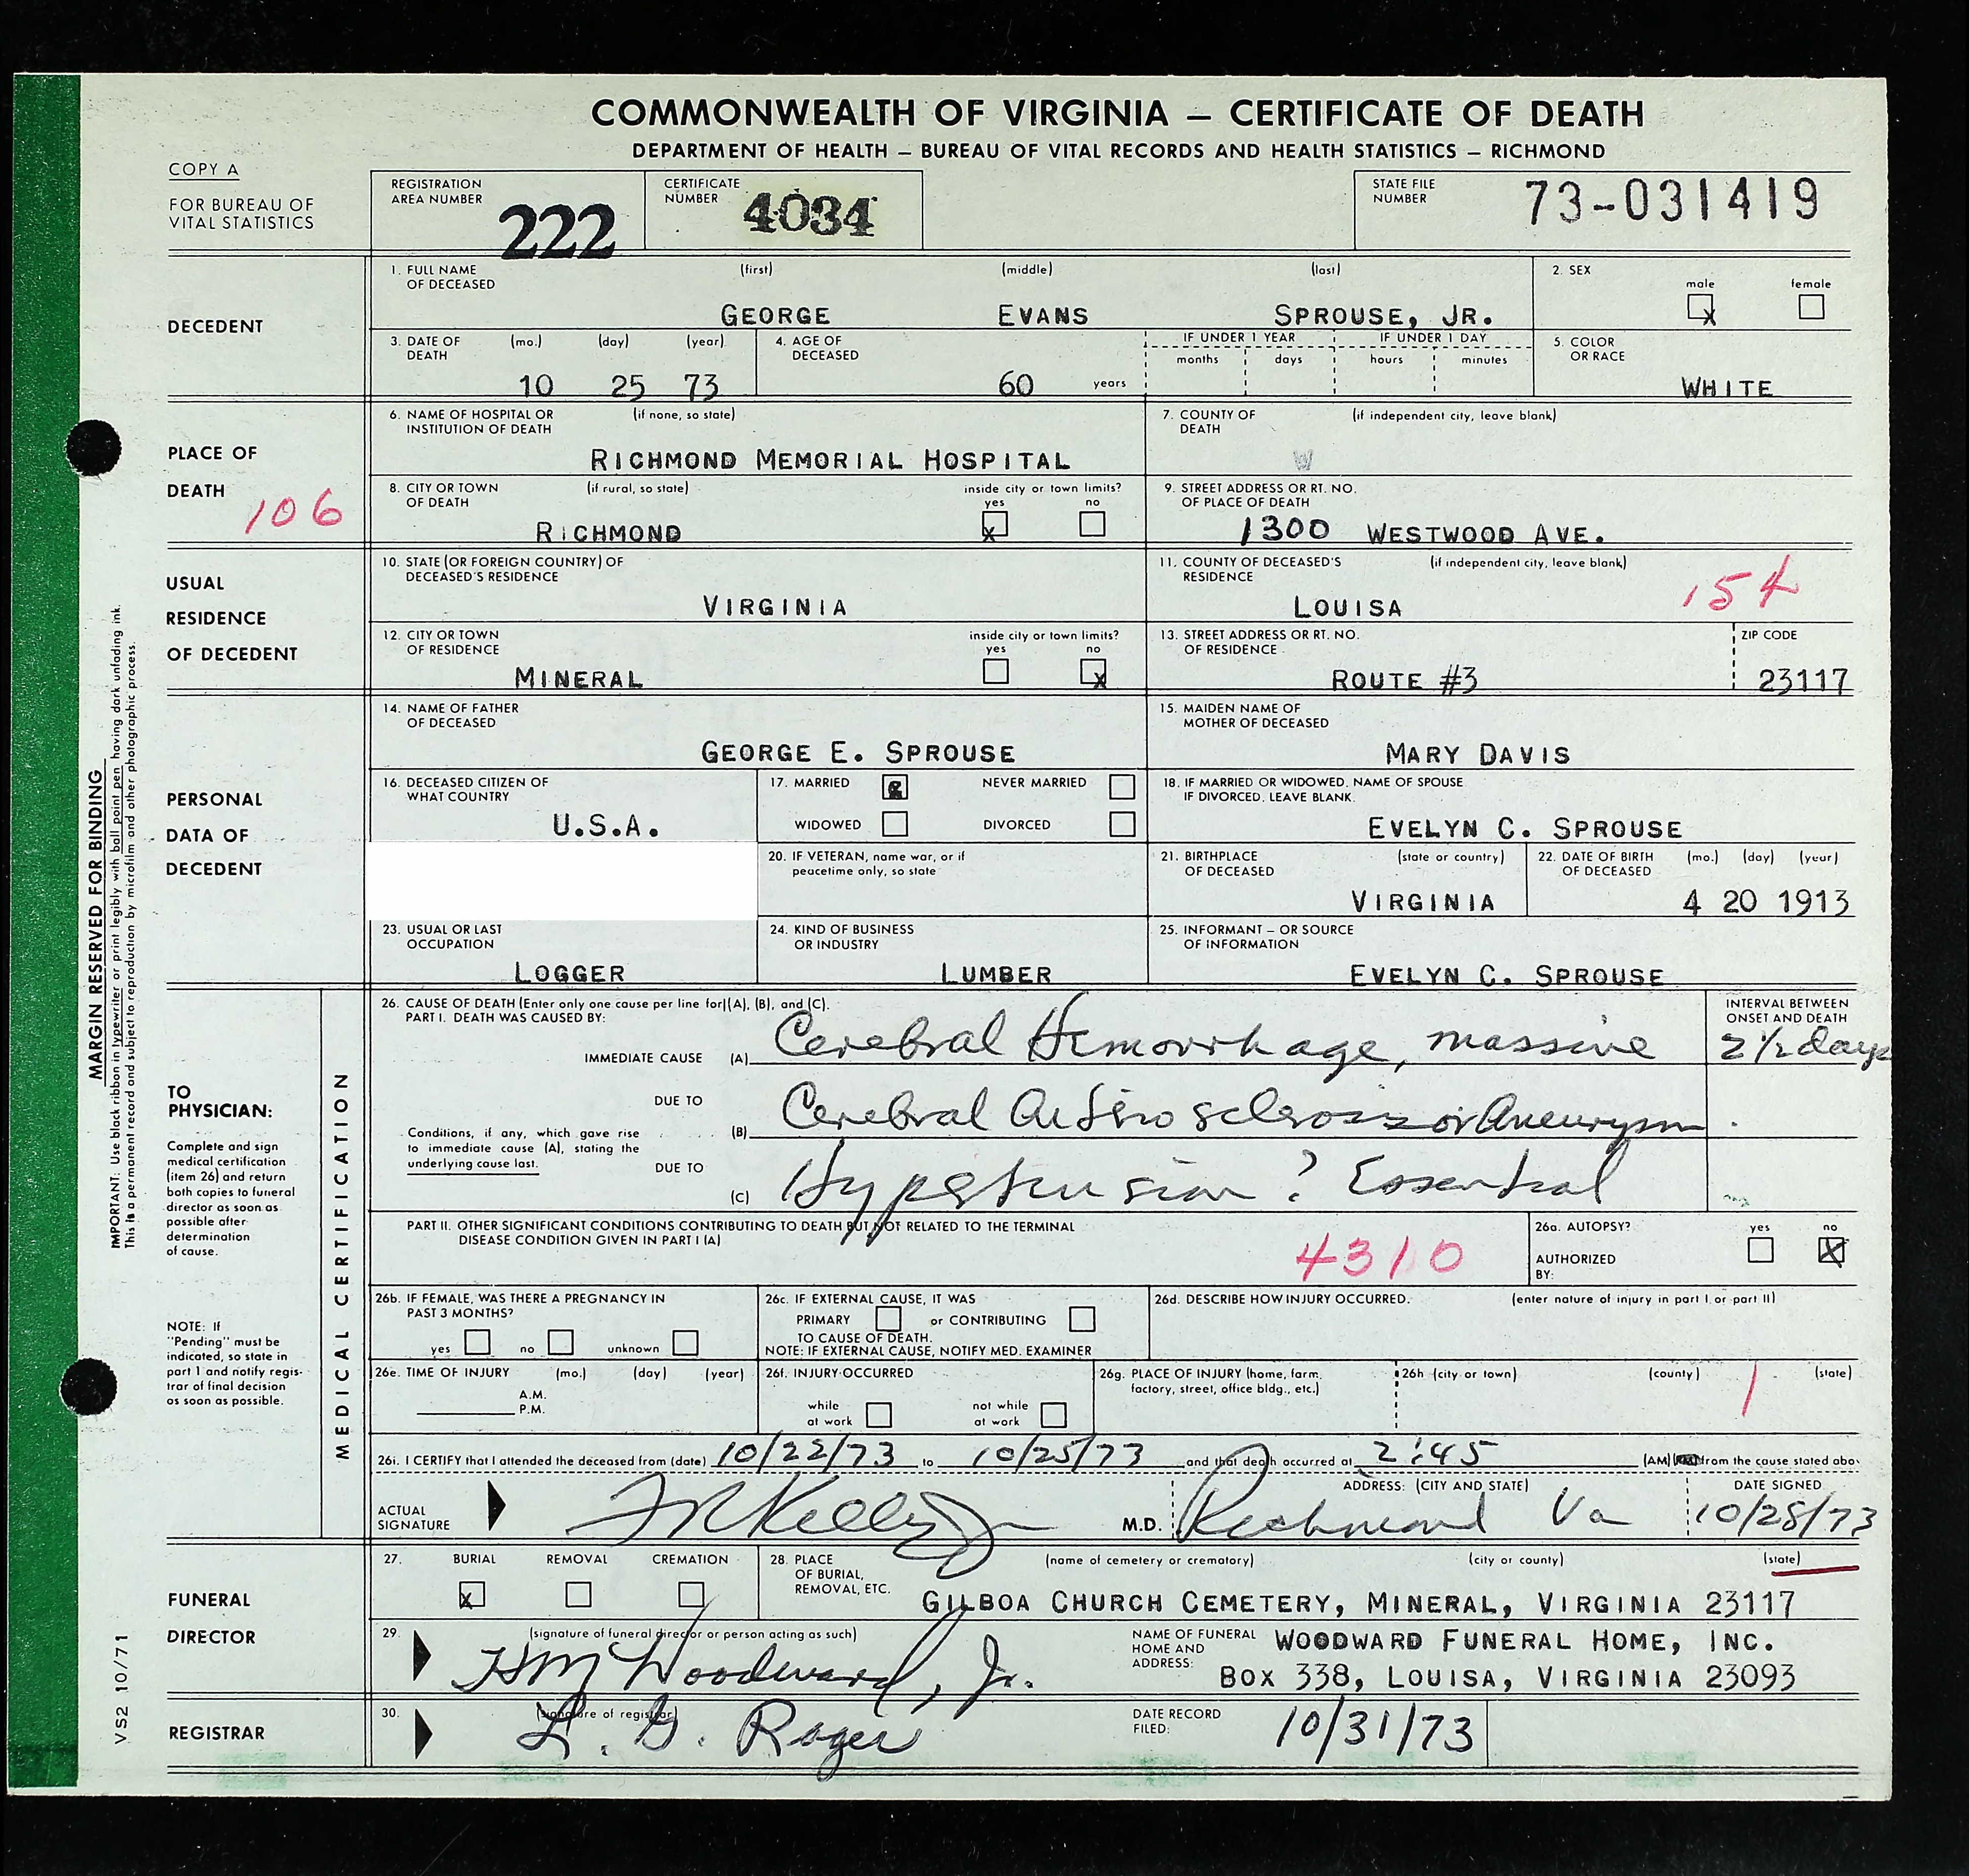 COMMONWEALTH OF VIRGINIA – CERTIFICATE OF DEATH
DEPARTMENT OF HEALTH – BUREAU OF VITAL RECORDS AND HEALTH STATISTICS – RICHMOND
COPY A
FOR BUREAU OF
VITAL STATISTICS
REGISTRATION
AREA NUMBER
222
CERTIFICATE
NUMBER
4034
STATE FILE
NUMBER
73-031419
DECEDENT
1. FULL NAME
OF DECEASED
(first) (middle) (last)
GEORGE EVANS SPROUSE, JR.
2. SEX
male female
X
3. DATE OF
DEATH
(mo.) (day) (year)
10 25 73
4. AGE OF
DECEASED
60 years
IF UNDER 1 YEAR IF UNDER 1 DAY
months days hours minutes
5. COLOR
OR RACE
WHITE
PLACE OF
DEATH
106
6. NAME OF HOSPITAL OR (if none, so state)
INSTITUTION OF DEATH
RICHMOND MEMORIAL HOSPITAL
7. COUNTY OF (if independent city, leave blank)
DEATH
W
8. CITY OR TOWN (if rural, so state)
OF DEATH
inside city or town limits?
yes no
X
RICHMOND
9. STREET ADDRESS OR RT. NO.
OF PLACE OF DEATH
1300 WESTWOOD AVE.
USUAL
RESIDENCE
OF DECEDENT
10. STATE (OR FOREIGN COUNTRY) OF
DECEASED'S RESIDENCE
VIRGINIA
11. COUNTY OF DECEASED'S (if independent city, leave blank)
RESIDENCE
LOUISA
154
12. CITY OR TOWN
OF RESIDENCE
inside city or town limits?
yes no
X
MINERAL
13. STREET ADDRESS OR RT. NO.
OF RESIDENCE
ROUTE #3
ZIP CODE
23117
PERSONAL
DATA OF
DECEDENT
14. NAME OF FATHER
OF DECEASED
GEORGE E. SPROUSE
15. MAIDEN NAME OF
MOTHER OF DECEASED
MARY DAVIS
16. DECEASED CITIZEN OF
WHAT COUNTRY
U.S.A.
17. MARRIED NEVER MARRIED
WIDOWED DIVORCED
18. IF MARRIED OR WIDOWED, NAME OF SPOUSE
IF DIVORCED, LEAVE BLANK.
EVELYN C. SPROUSE
20. IF VETERAN, name war, or if
peacetime only, so state
21. BIRTHPLACE (state or country)
OF DECEASED
VIRGINIA
22. DATE OF BIRTH (mo.) (day) (year)
OF DECEASED
4 20 1913
23. USUAL OR LAST
OCCUPATION
LOGGER
24. KIND OF BUSINESS
OR INDUSTRY
LUMBER
25. INFORMANT – OR SOURCE
OF INFORMATION
EVELYN C. SPROUSE
MARGIN RESERVED FOR BINDING
IMPORTANT: Use black ribbon in typewriter or print legibly with ball point pen having dark unfading ink.
This is a permanent record and subject to reproduction by microfilm and other photographic process.
VS2 10/71
TO
PHYSICIAN:
Complete and sign
medical certification
(item 26) and return
both copies to funeral
director as soon as
possible after
determination
of cause.
NOTE: If
"Pending" must be
indicated, so state in
part 1 and notify regis-
trar of final decision
as soon as possible.
MEDICAL CERTIFICATION
26. CAUSE OF DEATH (Enter only one cause per line for (A), (B), and (C).
PART I. DEATH WAS CAUSED BY:
INTERVAL BETWEEN
ONSET AND DEATH
IMMEDIATE CAUSE (A) Cerebral Hemorrhage, massive 2½ days
DUE TO
(B) Cerebral Arteriosclerosis or Aneurysm
Conditions, if any, which gave rise
to immediate cause (A), stating the
underlying cause last.
DUE TO
(C) Hypertension ? Essential
PART II. OTHER SIGNIFICANT CONDITIONS CONTRIBUTING TO DEATH BUT NOT RELATED TO THE TERMINAL
DISEASE CONDITION GIVEN IN PART I (A)
4310
26a. AUTOPSY? yes no
X
AUTHORIZED
BY:
26b. IF FEMALE, WAS THERE A PREGNANCY IN
PAST 3 MONTHS?
yes no unknown
26c. IF EXTERNAL CAUSE, IT WAS
PRIMARY or CONTRIBUTING
TO CAUSE OF DEATH.
NOTE: IF EXTERNAL CAUSE, NOTIFY MED. EXAMINER
26d. DESCRIBE HOW INJURY OCCURRED. (enter nature of injury in part I or part II)
26e. TIME OF INJURY (mo.) (day) (year)
A.M.
P.M.
26f. INJURY OCCURRED
while
at work
not while
at work
26g. PLACE OF INJURY (home, farm,
factory, street, office bldg., etc.)
26h (city or town) (county) (state)
1
26i. I CERTIFY that I attended the deceased from (date) 10/22/73 to 10/25/73 and that death occurred at 2:45 (AM) from the cause stated abov
ACTUAL
SIGNATURE
FR Kelly Jr
M.D.
ADDRESS: (CITY AND STATE)
Richmond Va
DATE SIGNED
10/28/73
FUNERAL
DIRECTOR
27. BURIAL REMOVAL CREMATION
X
28. PLACE
OF BURIAL,
REMOVAL, ETC.
(name of cemetery or crematory) (city or county) (state)
GILBOA CHURCH CEMETERY, MINERAL, VIRGINIA 23117
29. (signature of funeral director or person acting as such)
HM Woodward, Jr.
NAME OF FUNERAL
HOME AND
ADDRESS:
WOODWARD FUNERAL HOME, INC.
BOX 338, LOUISA, VIRGINIA 23093
REGISTRAR
30. (signature of registrar)
L. G. Roger
DATE RECORD
FILED:
10/31/73